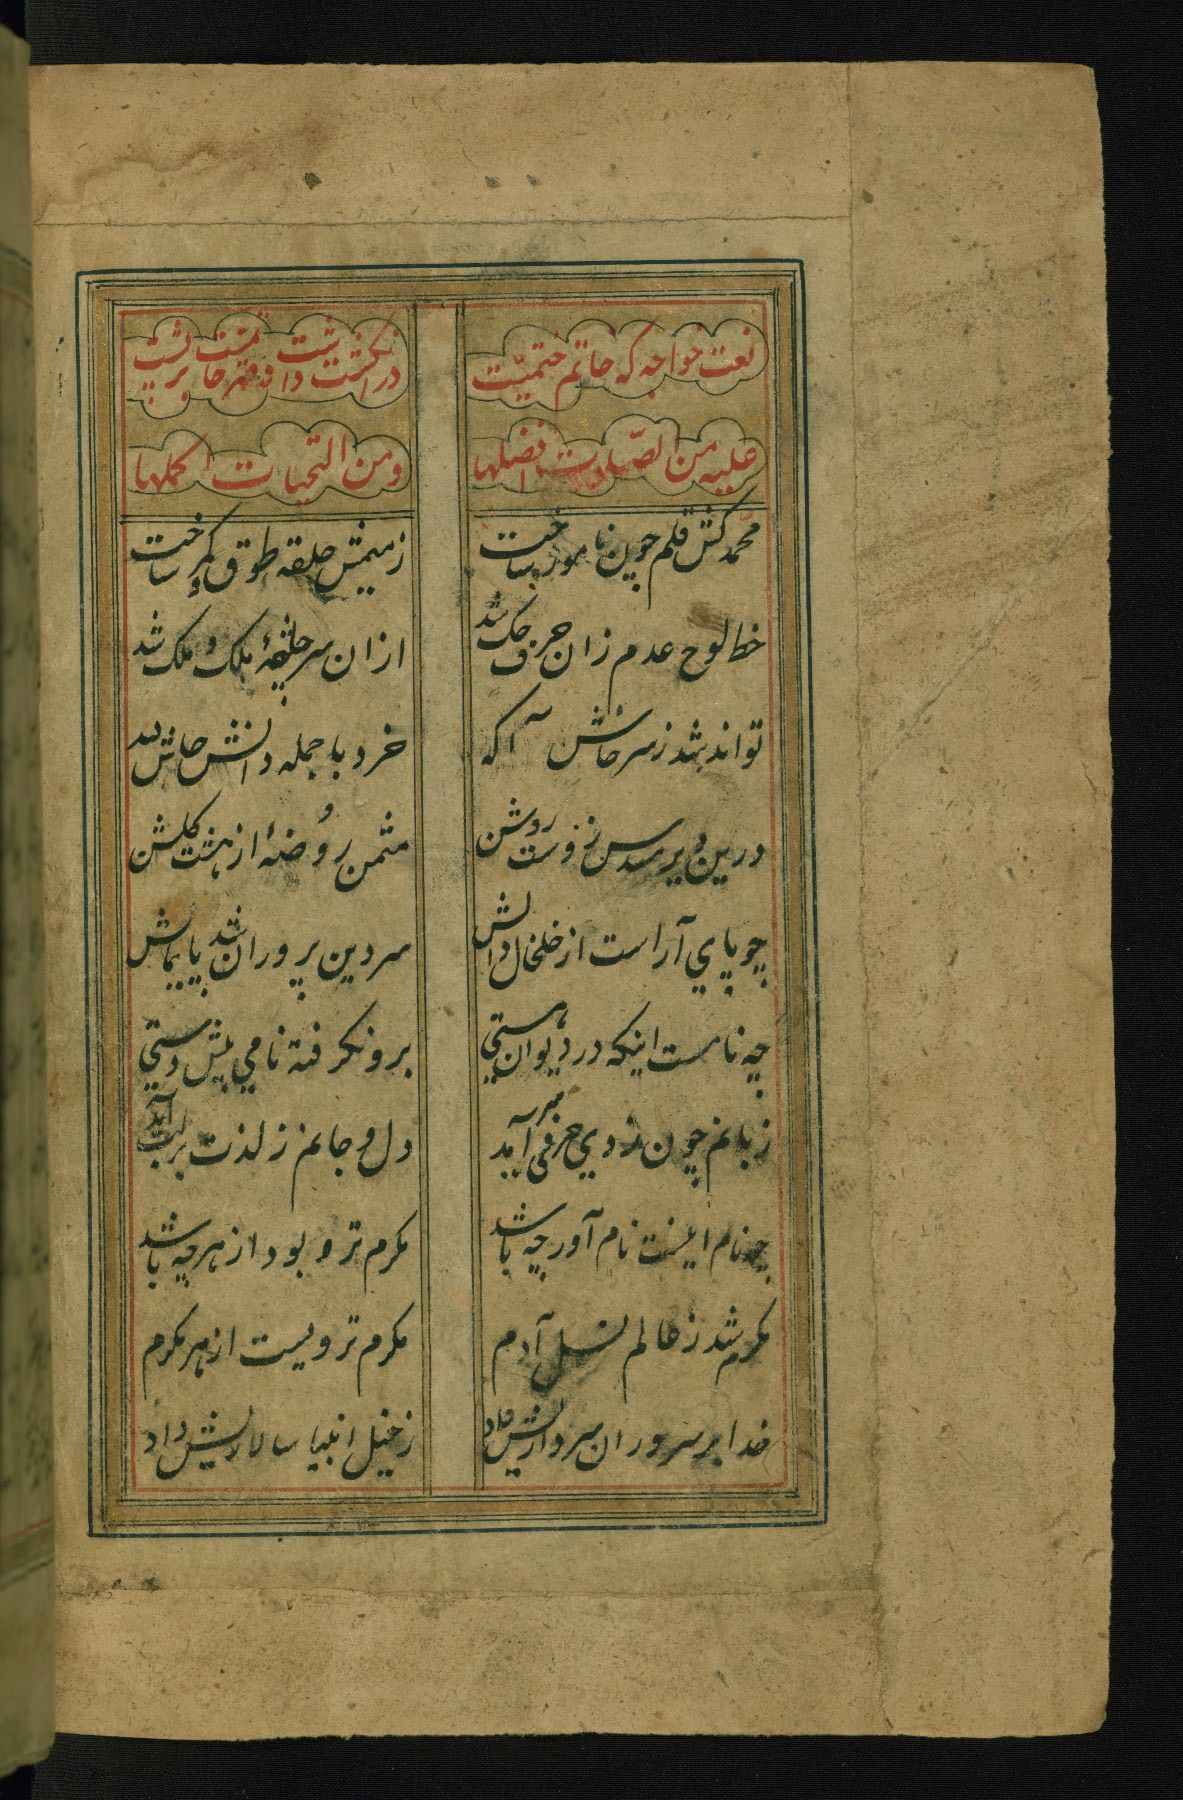 نعت خواجه که خاتم ختمیت
در انگشت داشت و مهر خاتمیت بر پشت
علیه من الصلوات افضلها
و من التحیات اکملها
محمد کش قلم چون نامور ساخت
ز میمش حلقه طوق کمر ساخت
خط لوح عدم زان حرف حک شد
ازان سر حلقهٔ ملک و ملک شد
تواند شد ز سر حاش آکه
خرد با جمله دانش حاش لله
درین دیر مسدس زوست روشن
مثمن روضهٔ از هشت گلشن
چو پای آراست از خلخال دالش
سر دین پروران شد پایمالش
چه نامست اینکه در دیوان هستی
برو نکرفته نامی پیش دستی
زبانم چون ز وی حرفی سر آید
دل و جانم ز لذت بر لب آید
چو نام اینست نام آور چه باشد
مکرم تر و بود از هر چه باشد
مکرم شد ز عالم نسل آدم
مکرم تر ویست از هر مکرم
خدا بر سروران سرداریش داد
ز خیل انبیا سالاریش داد